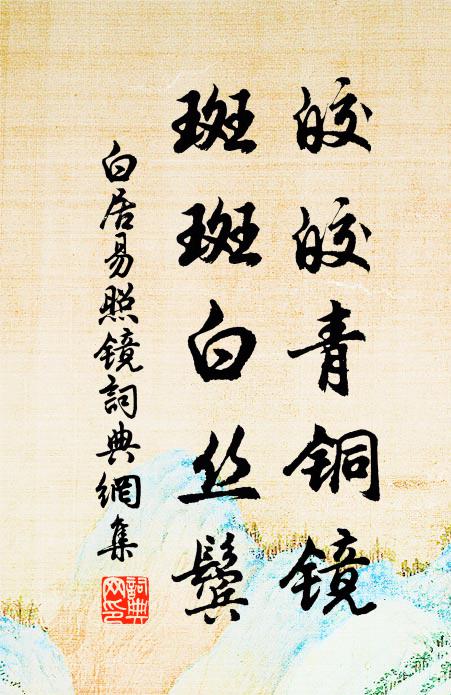 皎皎青铜镜
斑斑白丝鬓
白居易照镜詞典網集
詞典网印